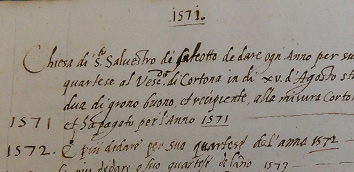 1571.
Chiesa di S.to Salvestro di saleotto de dare ogn' Anno per su
quartese al Vesc.do di Cortona in di xv. d'Agosto st
dua di grono buono, et recipiente, alla misura Corto
1571 et ha pagato per l'Anno 1571
1572. E piu dedare per suo quartese del'anno 1572
E piu dedare p suo quartese de lano 1573